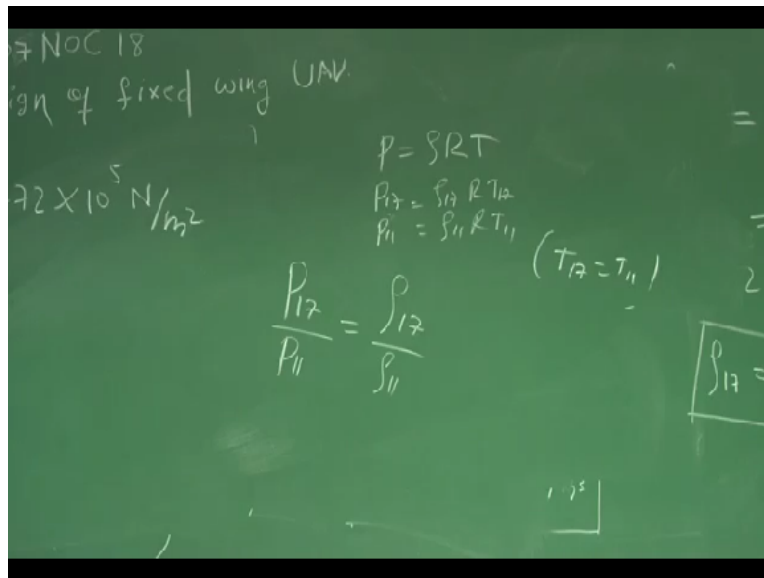 7 NOC 18
ign of fixed wing UAV.
72 × 10⁵ N/m²
P = ρRT
P₁₇ = ρ₁₇ R T₁₇
P₁₁ = ρ₁₁ R T₁₁
(T₁₇ = T₁₁)
P₁₇/P₁₁ = ρ₁₇/ρ₁₁
=
=
2
ρ₁₇ =